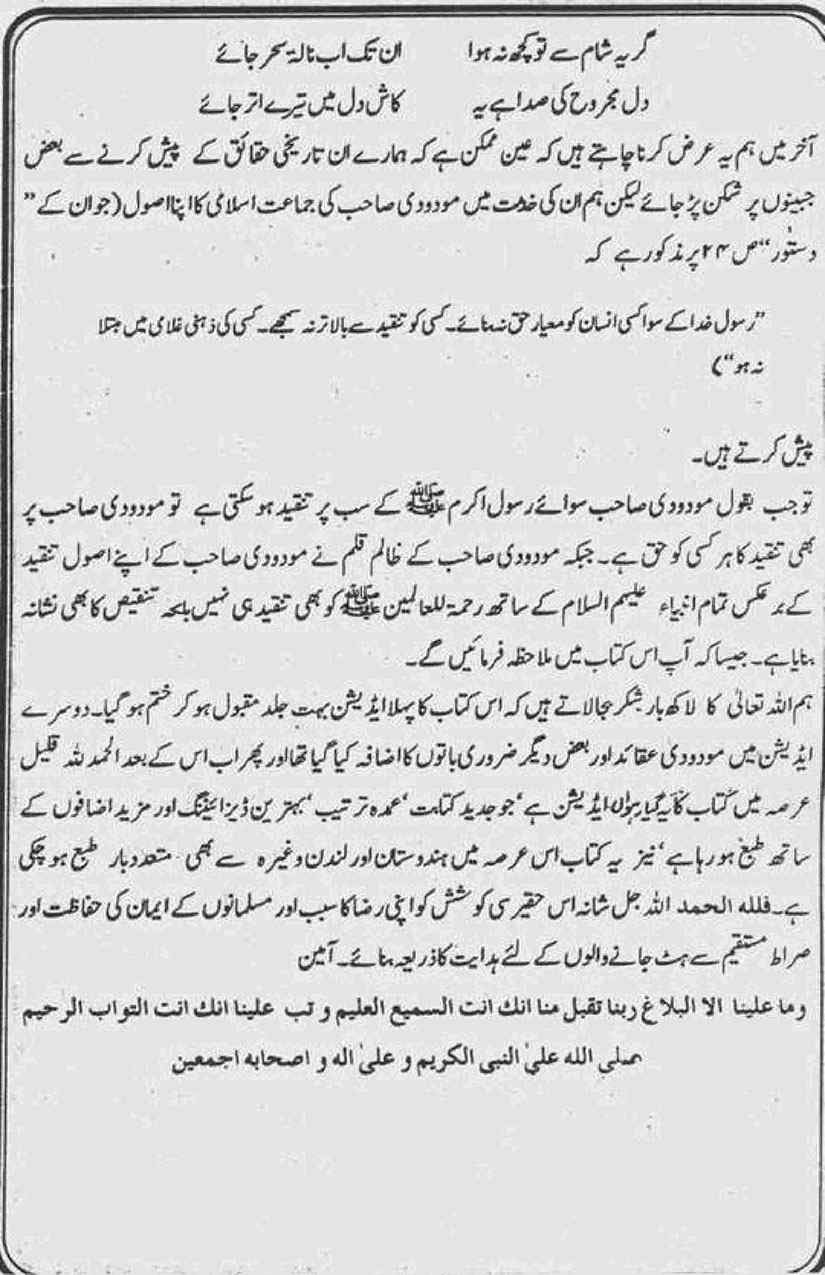 گریہ شام سے تو کچھ نہ ہوا ان تک اب نالۂ سحر جائے
دل مجروح کی صدا ہے یہ کاش دل میں تیرے اتر جائے
آخر میں ہم یہ عرض کرنا چاہتے ہیں کہ عین ممکن ہے کہ ہمارے ان تاریخی حقائق کے پیش کرنے سے بعض
جبینوں پر شکن پڑ جائے لیکن ہم ان کی خدمت میں مودودی صاحب کی جماعت اسلامی کا اپنا اصول (جو ان کے "
دستور" ص ۲۴ پر مذکور ہے کہ
"رسول خدا کے سوا کسی انسان کو معیار حق نہ بنائے۔ کسی کو تنقید سے بالاتر نہ سمجھے۔ کسی کی ذہنی غلامی میں مبتلا
نہ ہو")
پیش کرتے ہیں۔
تو جب بقول مودودی صاحب سوائے رسول اکرم ﷺ کے سب پر تنقید ہو سکتی ہے تو مودودی صاحب پر
بھی تنقید کا ہر کسی کو حق ہے۔ جبکہ مودودی صاحب کے ظالم قلم نے مودودی صاحب کے اپنے اصول تنقید
کے برعکس تمام انبیاء علیہم السلام کے ساتھ رحمۃ للعالمین ﷺ کو بھی تنقید ہی نہیں بلکہ تنقیص کا بھی نشانہ
بنایا ہے۔ جیسا کہ آپ اس کتاب میں ملاحظہ فرمائیں گے۔
ہم اللہ تعالیٰ کا لاکھ بار شکر بجا لاتے ہیں کہ اس کتاب کا پہلا ایڈیشن بہت جلد مقبول ہو کر ختم ہو گیا۔ دوسرے
ایڈیشن میں مودودی عقائد اور بعض دیگر ضروری باتوں کا اضافہ کیا گیا تھا اور پھر اب اس کے بعد الحمد للہ قلیل
عرصہ میں کتاب کا یہ گیارہواں ایڈیشن ہے' جو جدید کتابت' عمدہ ترتیب' بہترین ڈیزائیننگ اور مزید اضافوں کے
ساتھ طبع ہو رہا ہے' نیز یہ کتاب اس عرصہ میں ہندوستان اور لندن وغیرہ سے بھی متعدد بار طبع ہو چکی
ہے۔ فللہ الحمد اللہ جل شانہ اس حقیر سی کوشش کو اپنی رضا کا سبب اور مسلمانوں کے ایمان کی حفاظت اور
صراط مستقیم سے ہٹ جانے والوں کے لئے ہدایت کا ذریعہ بنائے۔ آمین
وما علینا الا البلاغ ربنا تقبل منا انك انت السمیع العلیم و تب علینا انك انت التواب الرحیم
صلی الله علیٰ النبی الکریم و علیٰ اله و اصحابه اجمعین